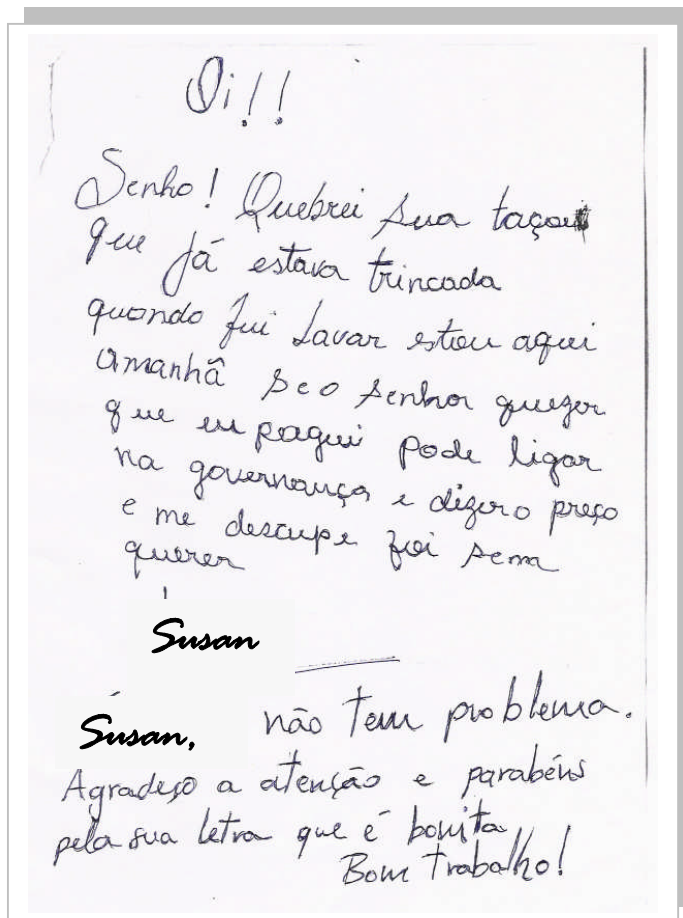 Oi!!
Senho! Quebrei sua taça
que já estava trincada
quando fui Lavar estou aqui
amanhã se o senhor quezer
que eu pagui pode ligar
na governança e dizer o preço
e me descupe foi sem
querer
Susan
Susan, não tem problema.
Agradeço a atenção e parabéns
pela sua letra que é bonita
Bom trabalho!